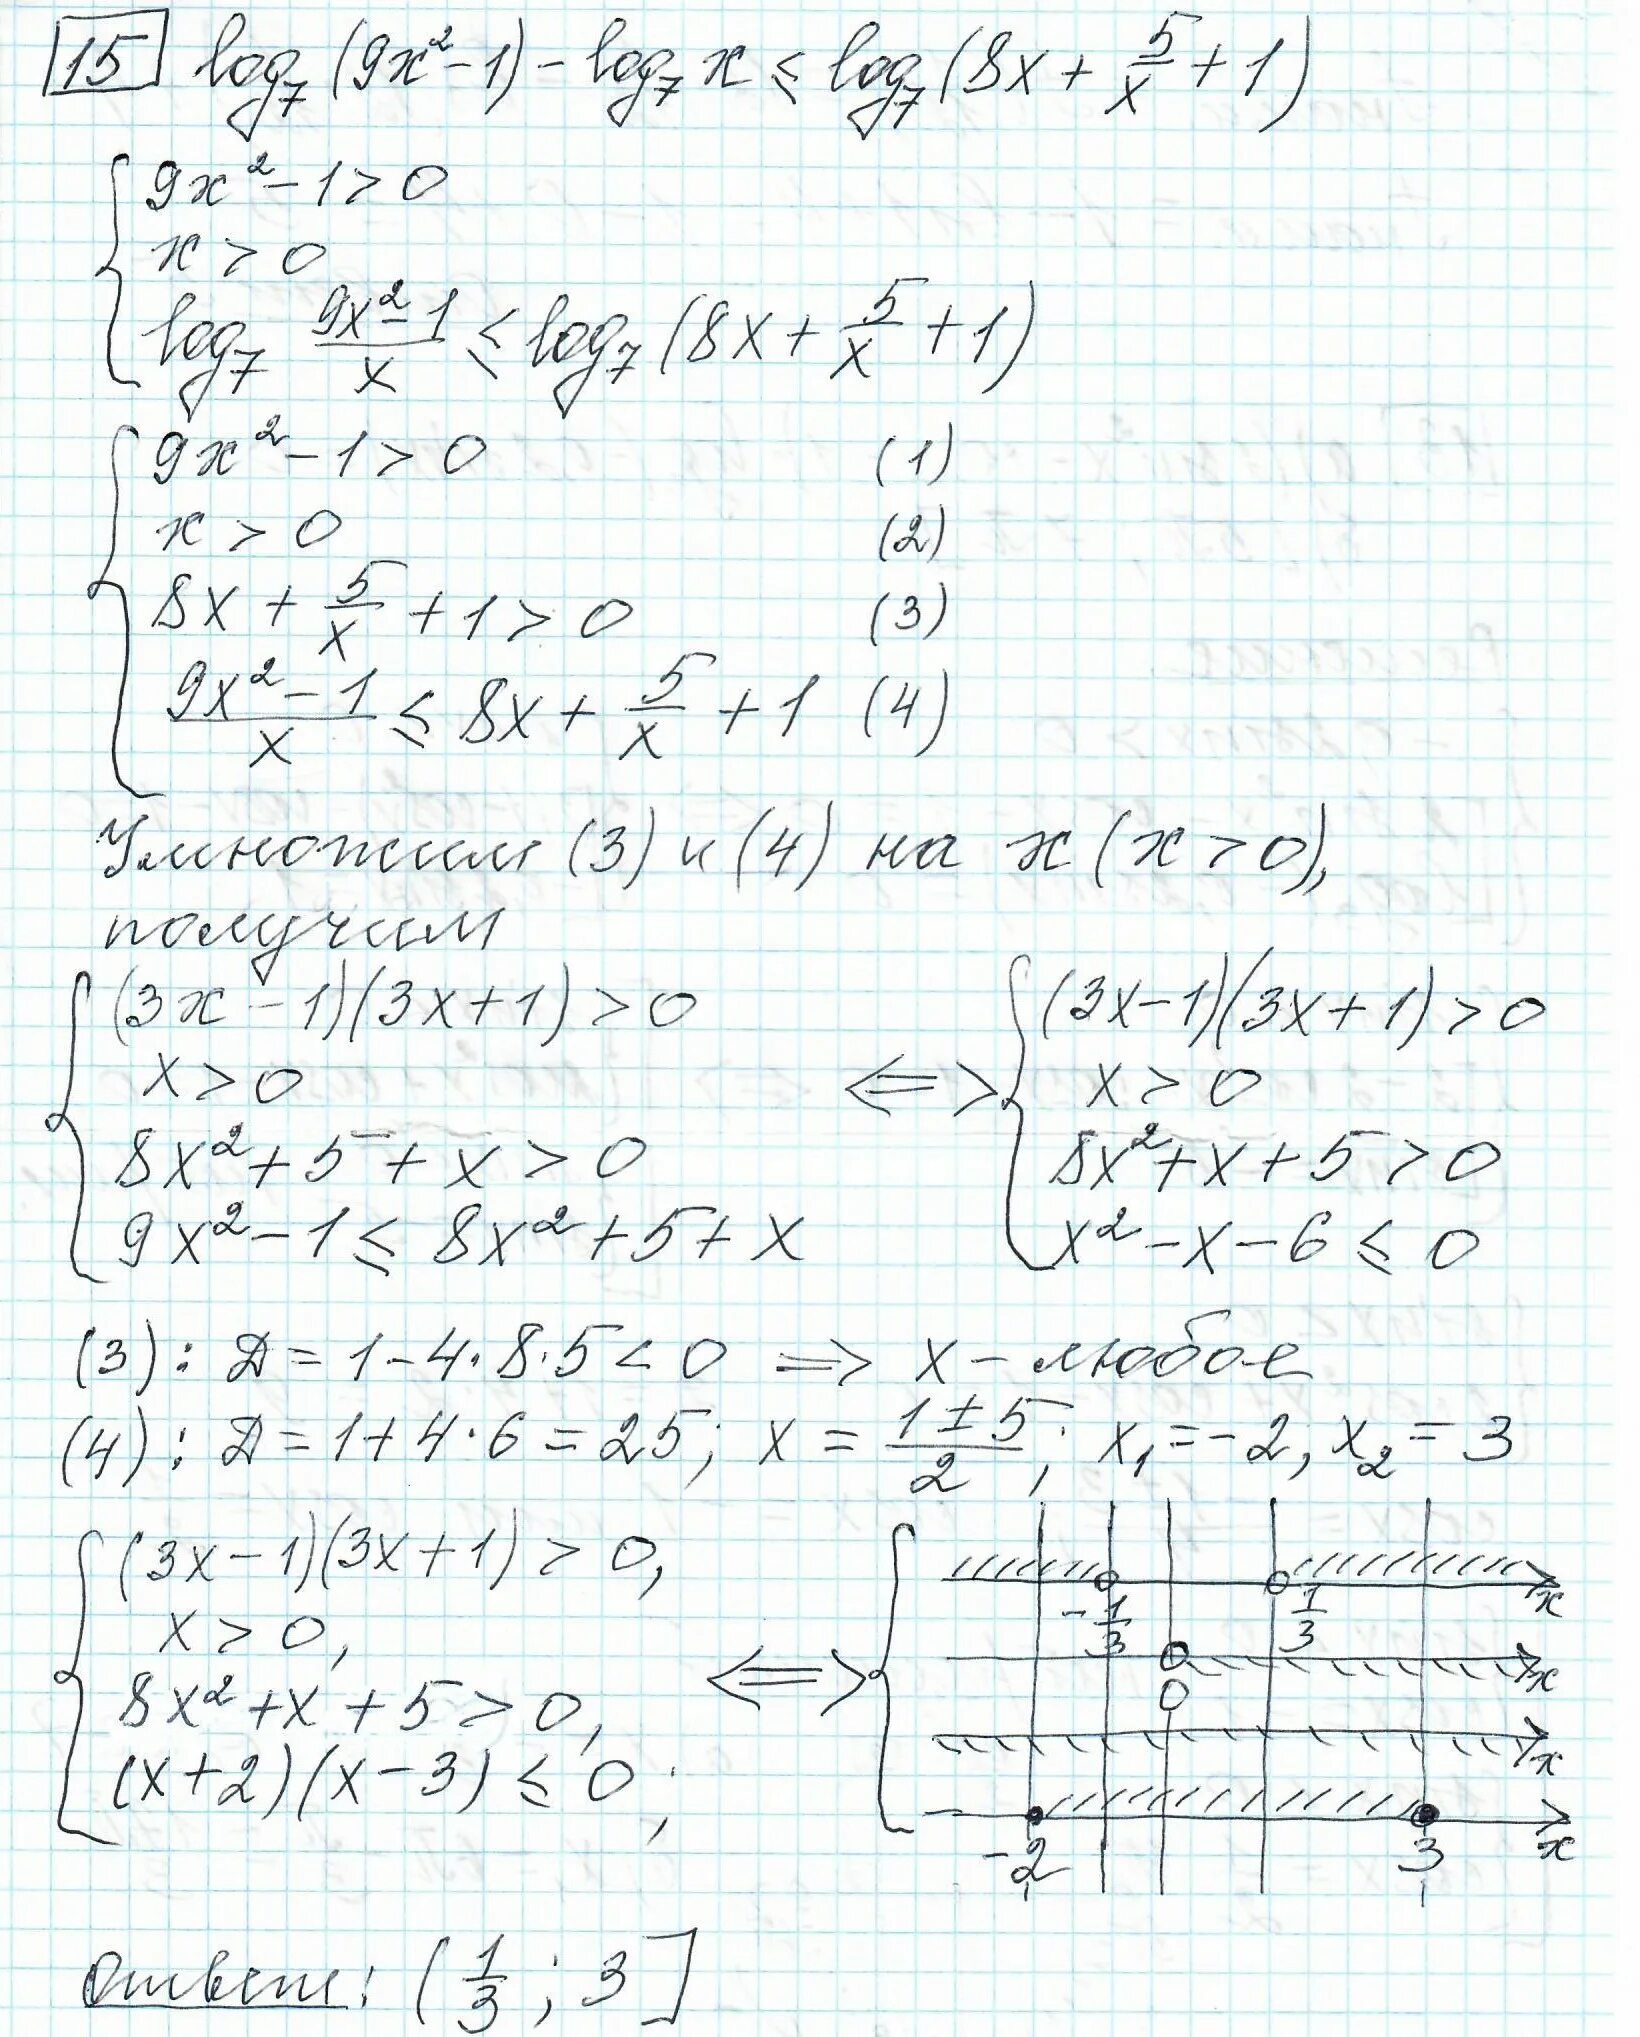 15 log₇(9x²-1) - log₇ x ≤ log₇(8x + 5/x + 1)
{ 9x² - 1 > 0
x > 0
log₇ (9x²-1)/x ≤ log₇(8x + 5/x + 1)
{ 9x² - 1 > 0 (1)
x > 0 (2)
8x + 5/x + 1 > 0 (3)
(9x² - 1)/x ≤ 8x + 5/x + 1 (4)
Умножим (3) и (4) на x (x > 0),
получим
{ (3x - 1)(3x + 1) > 0 ⇔ { (3x-1)(3x+1) > 0
x > 0 x > 0
8x² + 5 + x > 0 8x² + x + 5 > 0
9x² - 1 ≤ 8x² + 5 + x x² - x - 6 ≤ 0
(3): Д = 1 - 4·8·5 < 0 ⇒ x - любое
(4): Д = 1 + 4·6 = 25; x = (1 ± 5)/2; x₁ = -2, x₂ = 3
{ (3x-1)(3x+1) > 0,
x > 0,
8x² + x + 5 > 0,
(x+2)(x-3) ≤ 0;
⇔ {
-1/3 1/3 x
0 x
x
-2 3 x
Ответ: (1/3; 3]